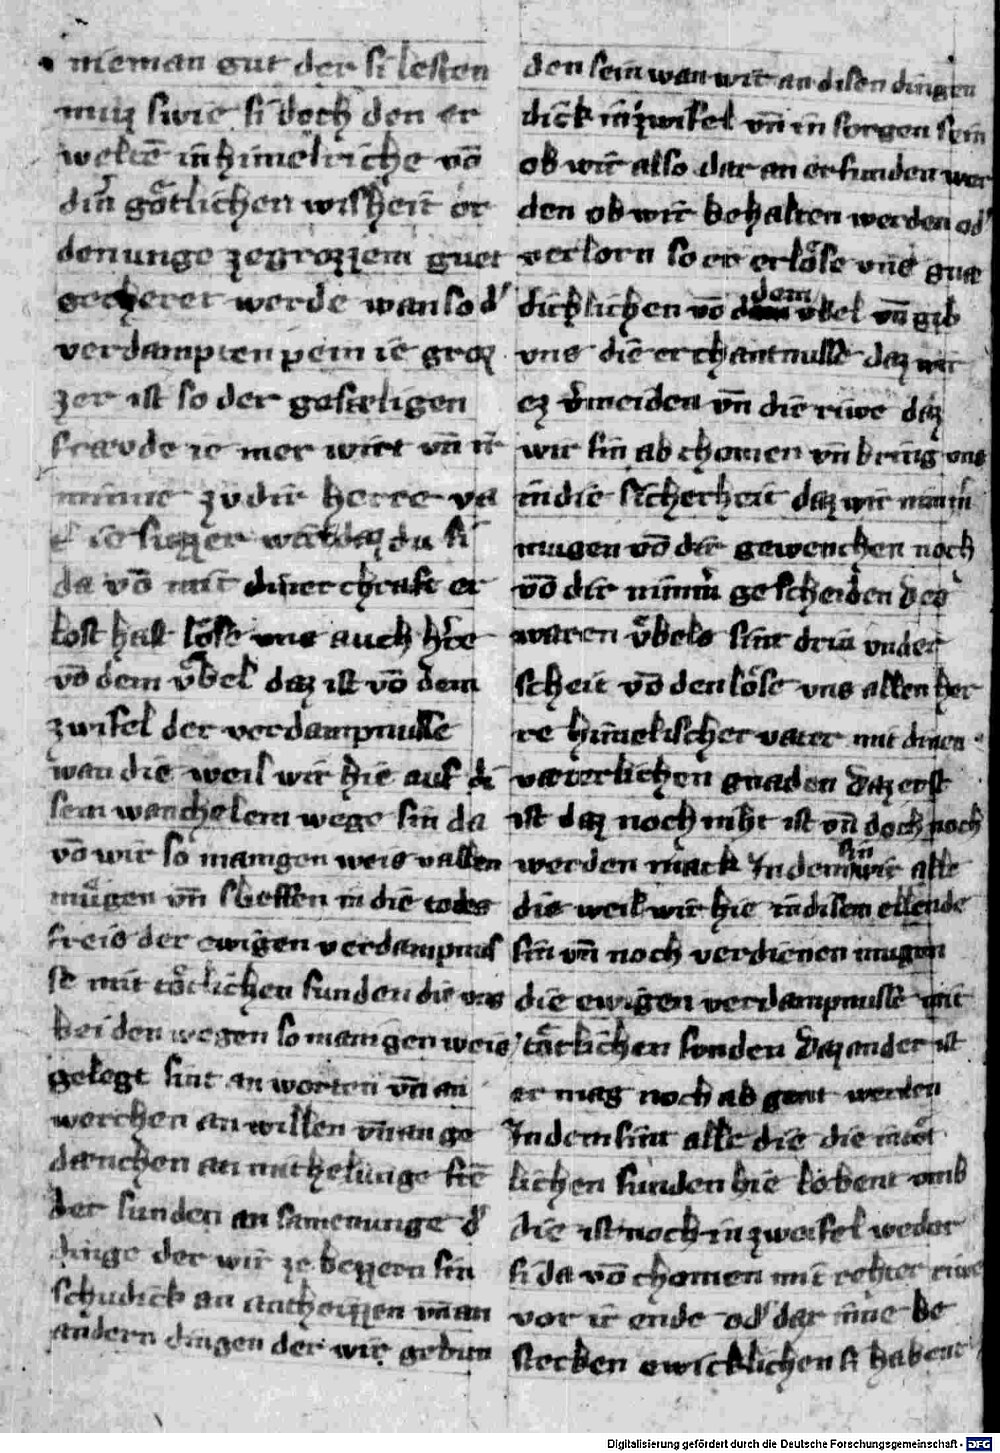 nieman gut der si lesten
muz swie si doch den er
weltē in himelriche vō
din̄ goͤtlichen wisheit or
denunge zegrozzem guet
gecheret werde wan so dˢ
verdampten pein ie groz
zer ist so der gaesteligen
fraevde ie mer wirt vn̄ ir
minne zv dir herre va
ie suezzer wirt daz du si
da vō mit diner chraft er
lost hast loͤse vns auch hˢre
vō dem vͤbel daz ist vō dem
zwifel der verdampnusse
wan die weil wir hie auf di
sem wanchelem wege sin da
vō wir so manigen weis vallen
muͤgen vn̄ sleffen in die todes
freis der ewigen verdampnus
se mit toͤtlichen sunden die vns
bei den wegen so manigen weis
gelegt sint an worten vn̄ an
werchen an willen vn̄ an ge
daenchen an mithelunge frē
der sunden an samenunge dˢ
dinge der wir ze bezzern sin
schudick an antheizzen vn̄ an
andern dingen der wir gebun
den sein wan wir an disen dingen
dick in zwifel vn̄ in sorgen sein
ob wir also dar an erfunden wer
den ob wir behalten werden odˢ
verlorn so er erloͤse vns gnae
dicklichen vō dem vbel vn̄ gib
vns die erchantnusse daz wir
ez vˢmeiden vn̄ die riwe daz
wir sin ab chomen vn̄ bring vns
in die sicherheit daz wir nimˢ
mugen vō dir gewenchen noch
vō dir nimmˢ gescheiden des
waren vͤbels sint driu vnder
scheit vō den loͤse vns allen her
re himelischer vater mit dinen
vaeterlichen gnaden Daz erst
ist daz noch niht ist vn̄ doch noch
werden mack In dem sin wir alle
die weil wir hie in disem ellende
sin vn̄ noch verdienen mugen
die ewigen verdampnusse mit
toͤtlichen sonden Daz ander ist
er mag noch ab gent werden
In dem sint alle die die in toͤt
lichen sunden hie lebent vmb
die ist noch in zweifel weder
si da vō chomen mit rehter riwe
vor ir ende odˢ dar inne be
stecken ewicklichen si habent
Digitalisierung gefördert durch die Deutsche Forschungsgemeinschaft - DFG